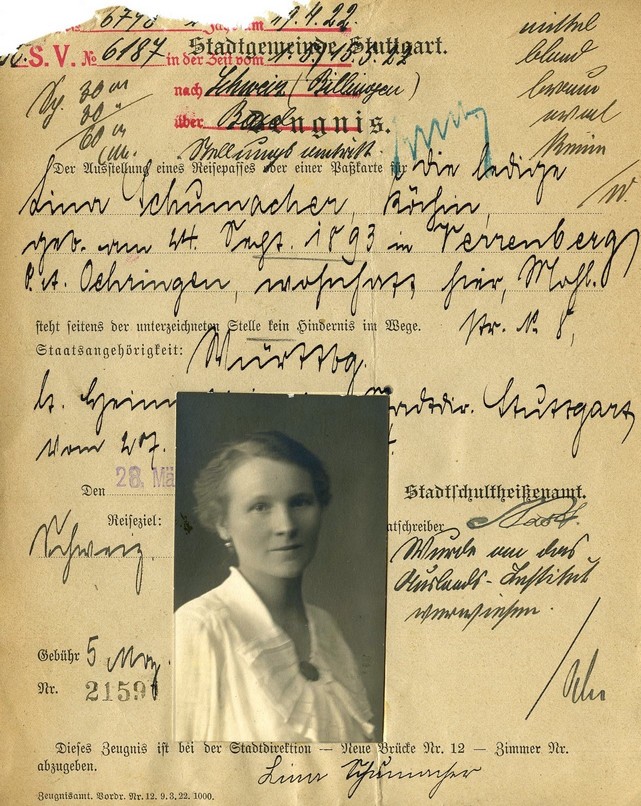 6770 19.4.22.
S.V. № 6187 in der Zeit vom
Stadtgemeinde Stuttgart.
nach Schweiz (Billingen)
über Basel
Zeugnis.
Stellungsantritt.
mittel
blond
braun
oval
keine
30
30
60
Der Ausstellung eines Reisepasses oder einer Paßkarte für die ledige
Lina Schumacher, Köchin,
geb. am 24. Sept. 1893 in Verrenberg,
O.A. Oehringen, wohnhaft hier, Mohl.
str. N. 8,
steht seitens der unterzeichneten Stelle kein Hindernis im Wege.
Staatsangehörigkeit: Württbg.
lt. Heim Stadtdir. Stuttgart
vom 27.
Den 28. Mä
Stadtschultheißenamt.
Reiseziel:
Schweiz.
atschreiber
Wurde an das
Auslands-Institut
verwiesen.
Gebühr 5 Mrg.
Nr. 21591
Dieses Zeugnis ist bei der Stadtdirektion — Neue Brücke Nr. 12 — Zimmer Nr.
abzugeben.
Lina Schumacher
Zeugnisamt. Vordr. Nr. 12. 9. 3. 22. 1000.